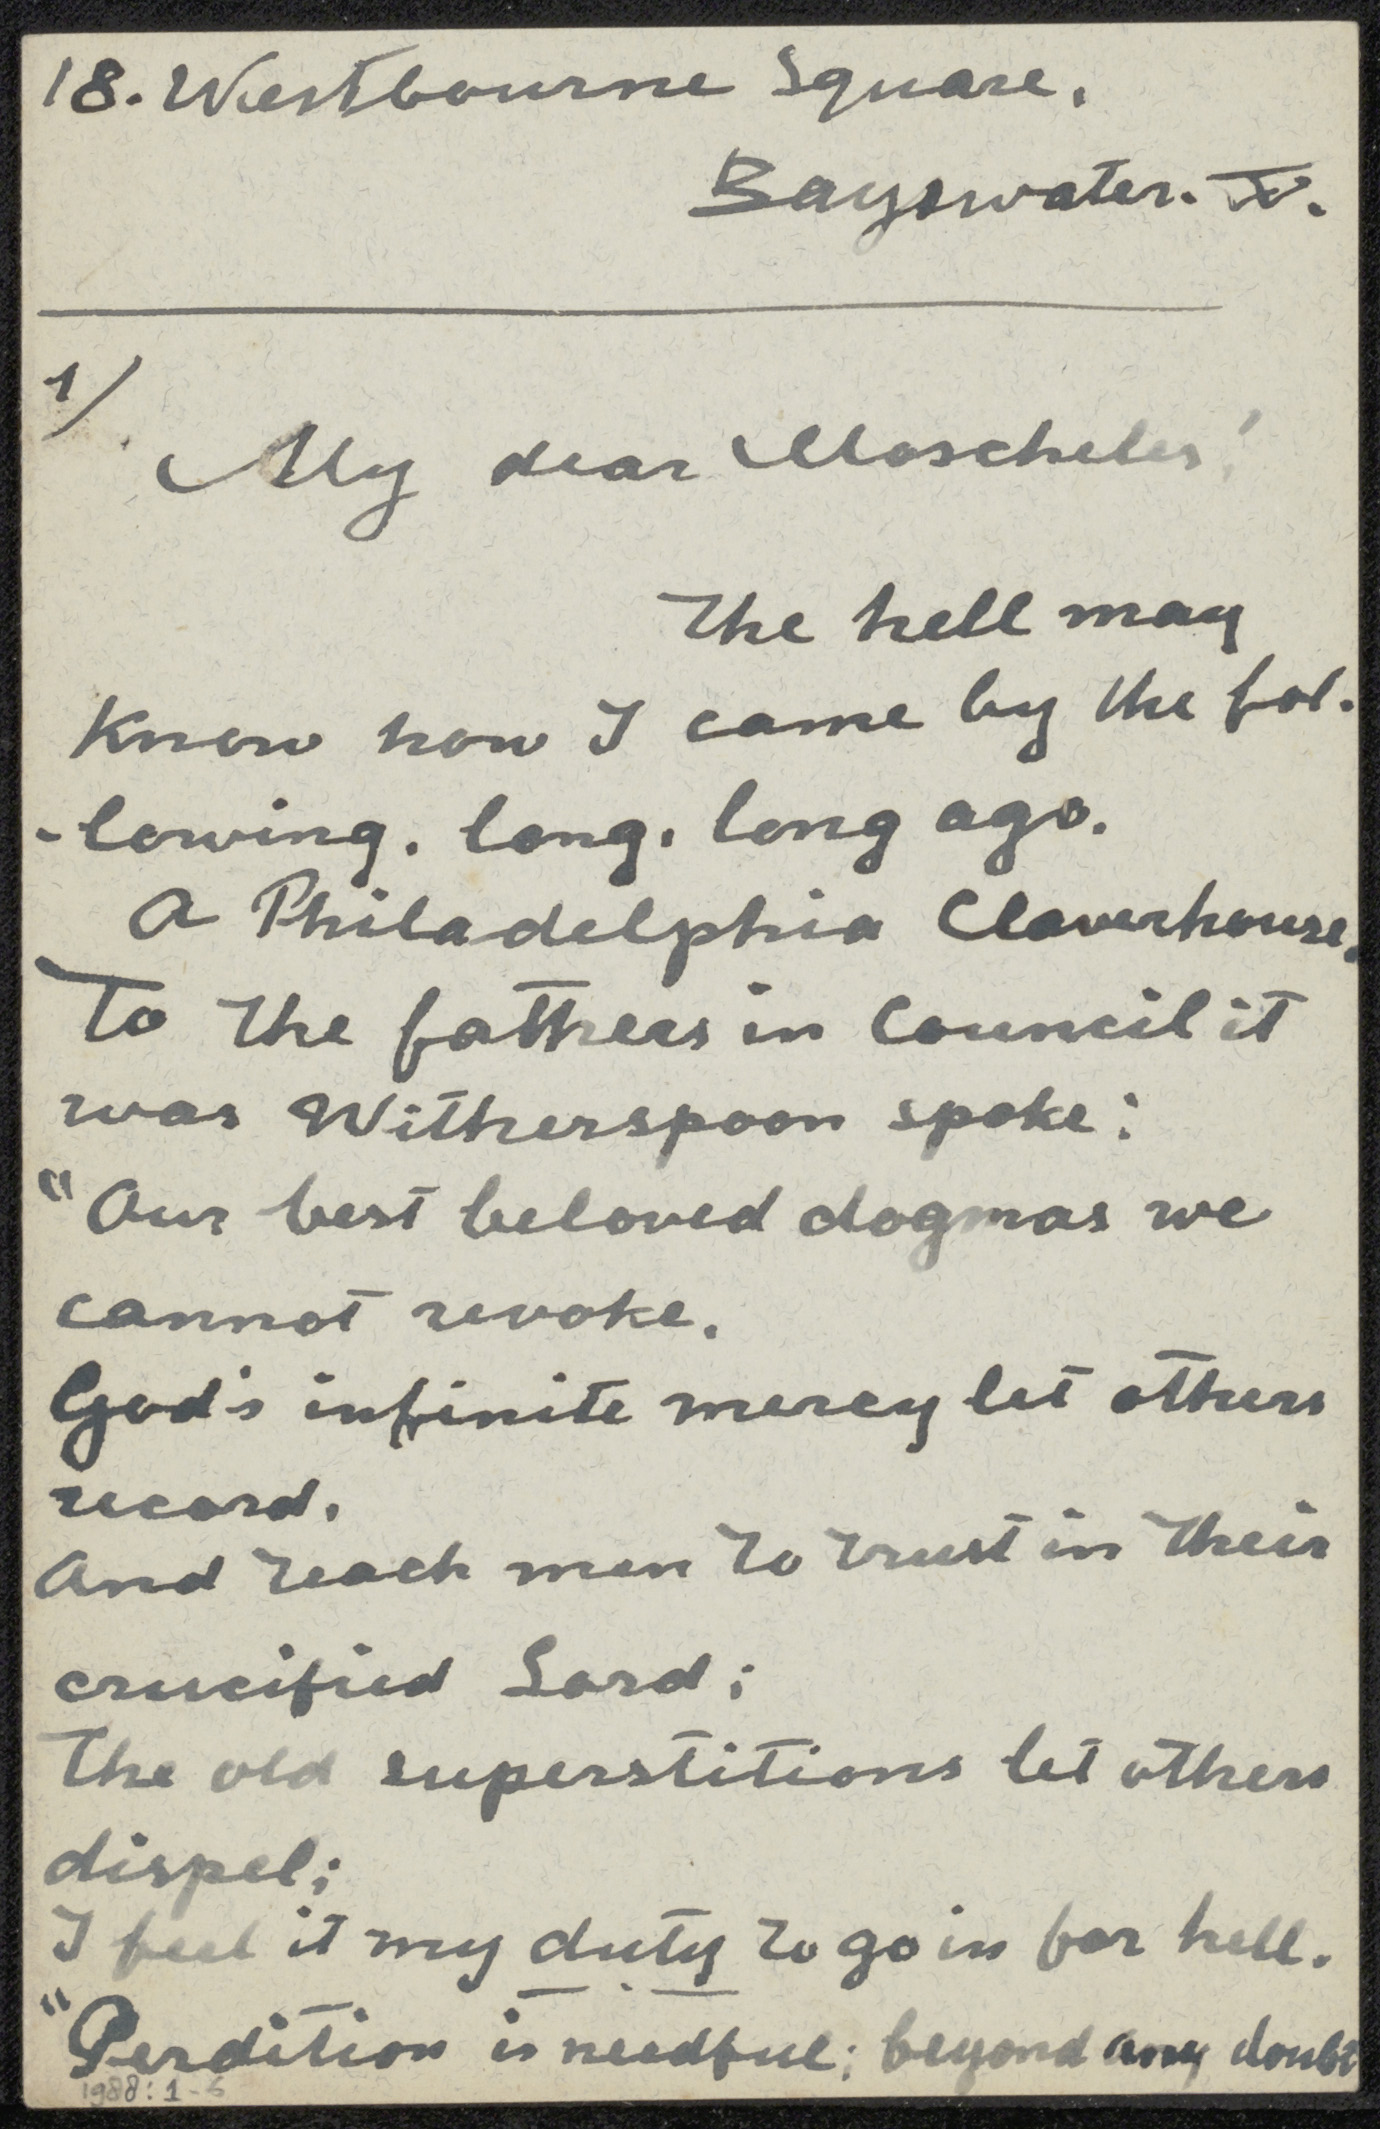 18. Westbourne Square.
Bayswater. W.
1/
My dear Moscheles!
The hell may
Know how I came by the fol-
-lowing. long. long ago.
A Philadelphia Claverhouse.
To the fathers in Council it
was Witherspoon spoke:
"Our best beloved dogmas we
cannot revoke.
God's infinite mercy let others
record.
And teach men to trust in their
crucified Lord;
The old superstitions let others
dispel;
I feel it my duty to go in for hell.
"Perdition is needful; beyond any doubt
1988:1-6